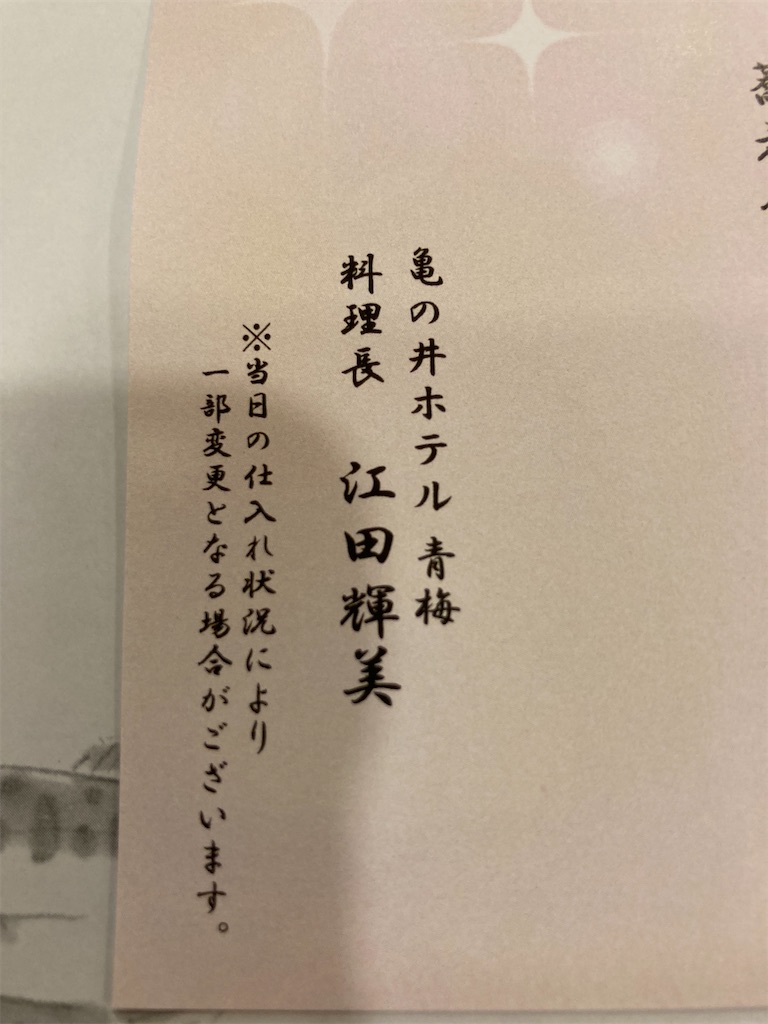 亀の井ホテル 青梅
料理長 江田輝美
※当日の仕入れ状況により
一部変更となる場合がございます。